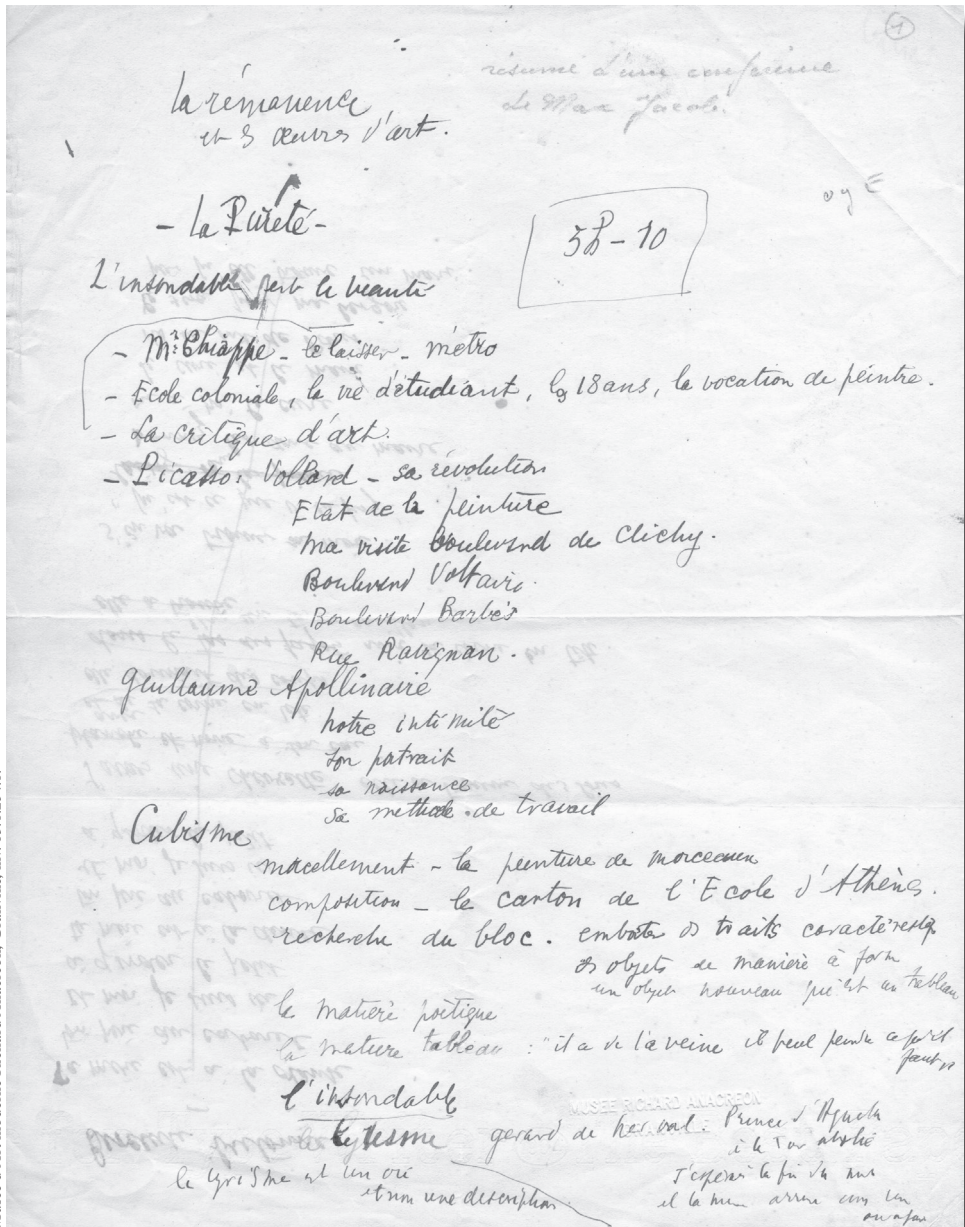 1
résumé d'une conférence
de Max Jacob.
la rémanence
et ds œuvres d'art.
- La Pureté -
5P - 10
L'insondable fait la beauté
- Mr. Chiappe - le laisser - métro
- Ecole coloniale, la vie d'étudiant, les 18 ans, la vocation de peintre.
- La critique d'art.
- Picasso: Vollard - sa révolution
Etat de la peinture
ma visite boulevard de Clichy.
Boulevard Voltaire.
Boulevard Barbès
Rue Ravignan.
Guillaume Apollinaire
notre intimité
son portrait
sa naissance
sa méthode de travail
Cubisme
morcellement - la peinture de morceaux
composition - le carton de l'Ecole d'Athènes.
recherche du bloc. ds traits caractéristiq
ds objets de manière à form
un objet nouveau qui est un tableau
la matière poétique
la matière tableau : "il a de la veine il peut peindre
l'insondable
MUSEE RICHARD ANACREON
lyrisme gerard de nerval : Prince d'Aquita
à la Tour abolie
le lyrisme est un
et non une description.